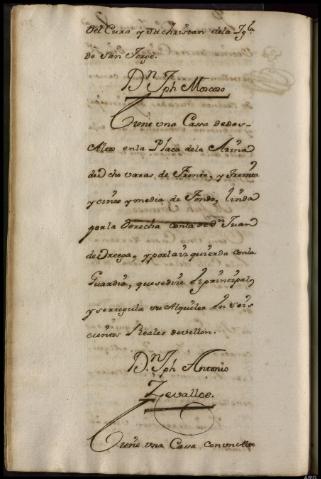 del Cura y Sachristan dela Ygl.ª
de San Jorge.
D.n Jph Moscoso
Tiene una Casa de dos
Altos en la Plaza dela Arina
de ocho varas de Frente, y treinta
y cinco y media de Fondo, linda
por la derecha con la de D.n Juan
de Ortega, y por la izquierda con la
Guardia, que se dice la principal,
y se regula su Alquiler en seis
cientos Reales de vellon.
D.n Jph Antonio
Zevallos.
Tiene una Casa con un Alto